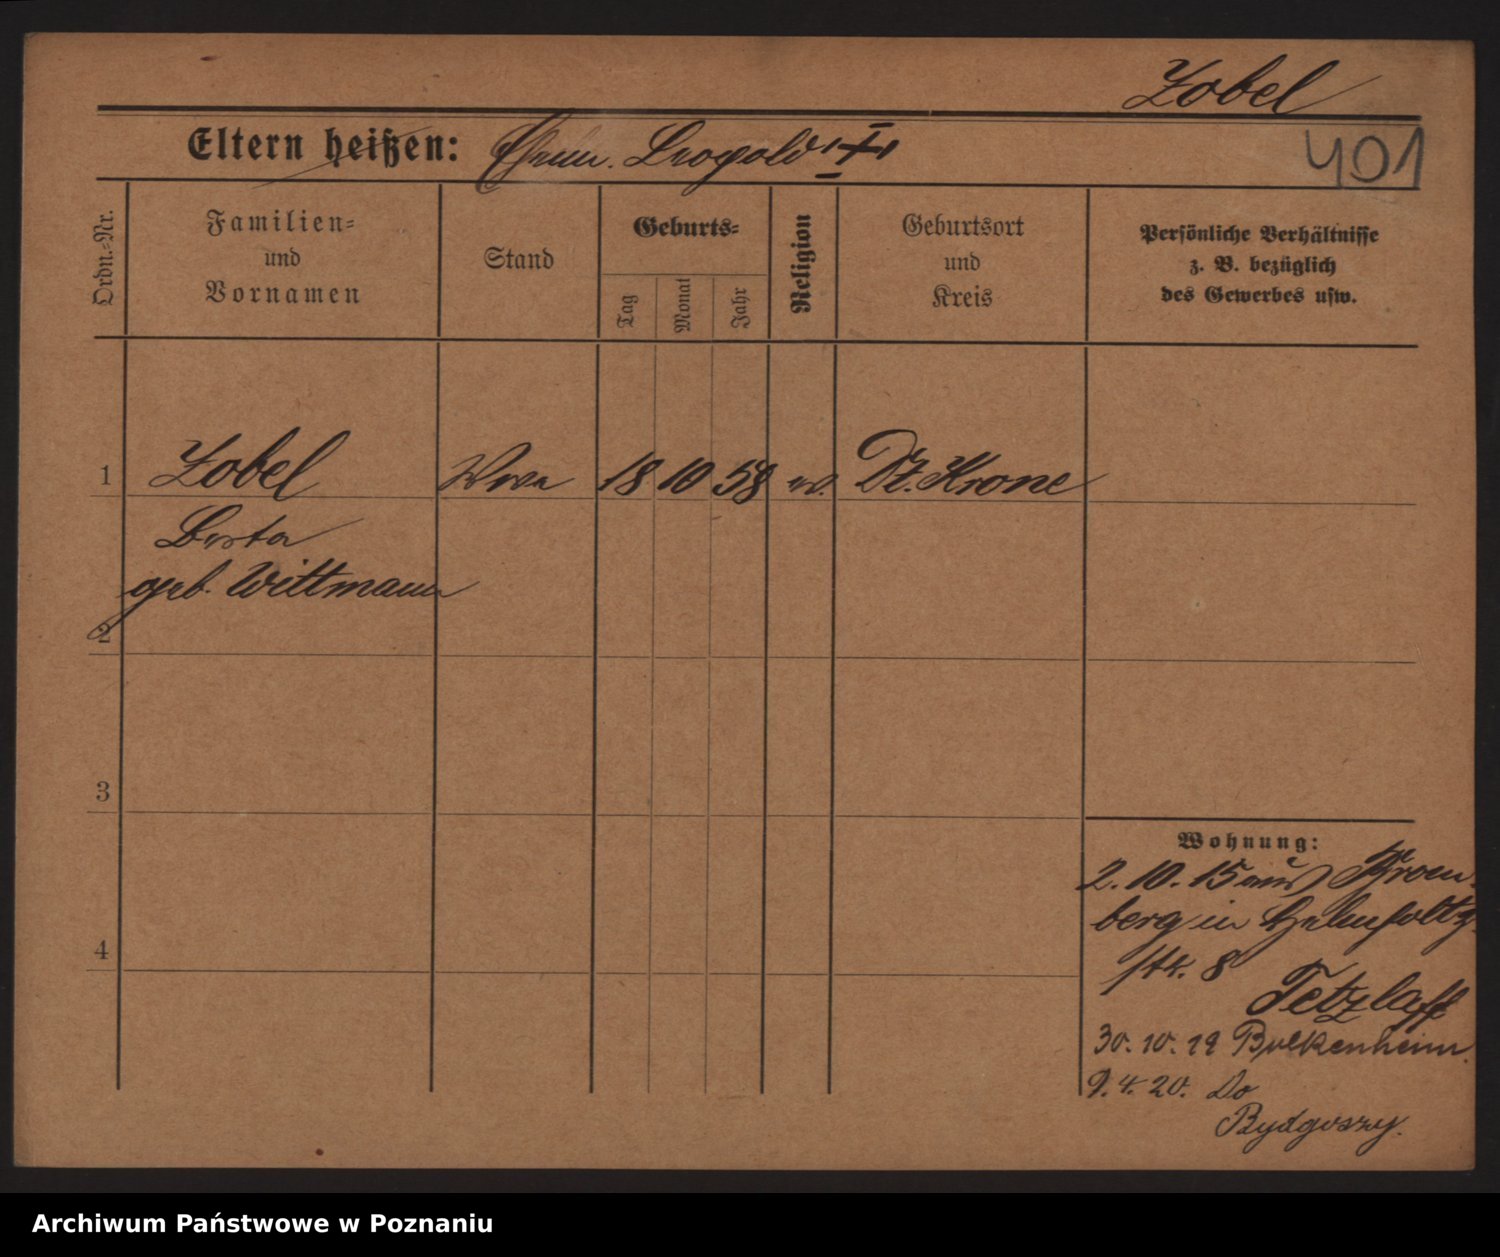 Zobel
401
Eltern heißen: Ehem. Leopold
Ordn.=Nr.
Familien=
und
Vornamen
Stand
Geburts=
Tag
Monat
Jahr
Religion
Geburtsort
und
Kreis
Persönliche Verhältnisse
z. B. bezüglich
des Gewerbes usw.
1
Zobel
Wwe
18
10
58
ev.
Dt. Krone
Berta
geb. Wittmann
2
3
4
Wohnung:
2. 10. 15 aus
berg in Helmholtz
str. 8
Tetzlaff
30. 10. 19
9. 4. 20. Do
Bydgoszy.
Archiwum Państwowe w Poznaniu